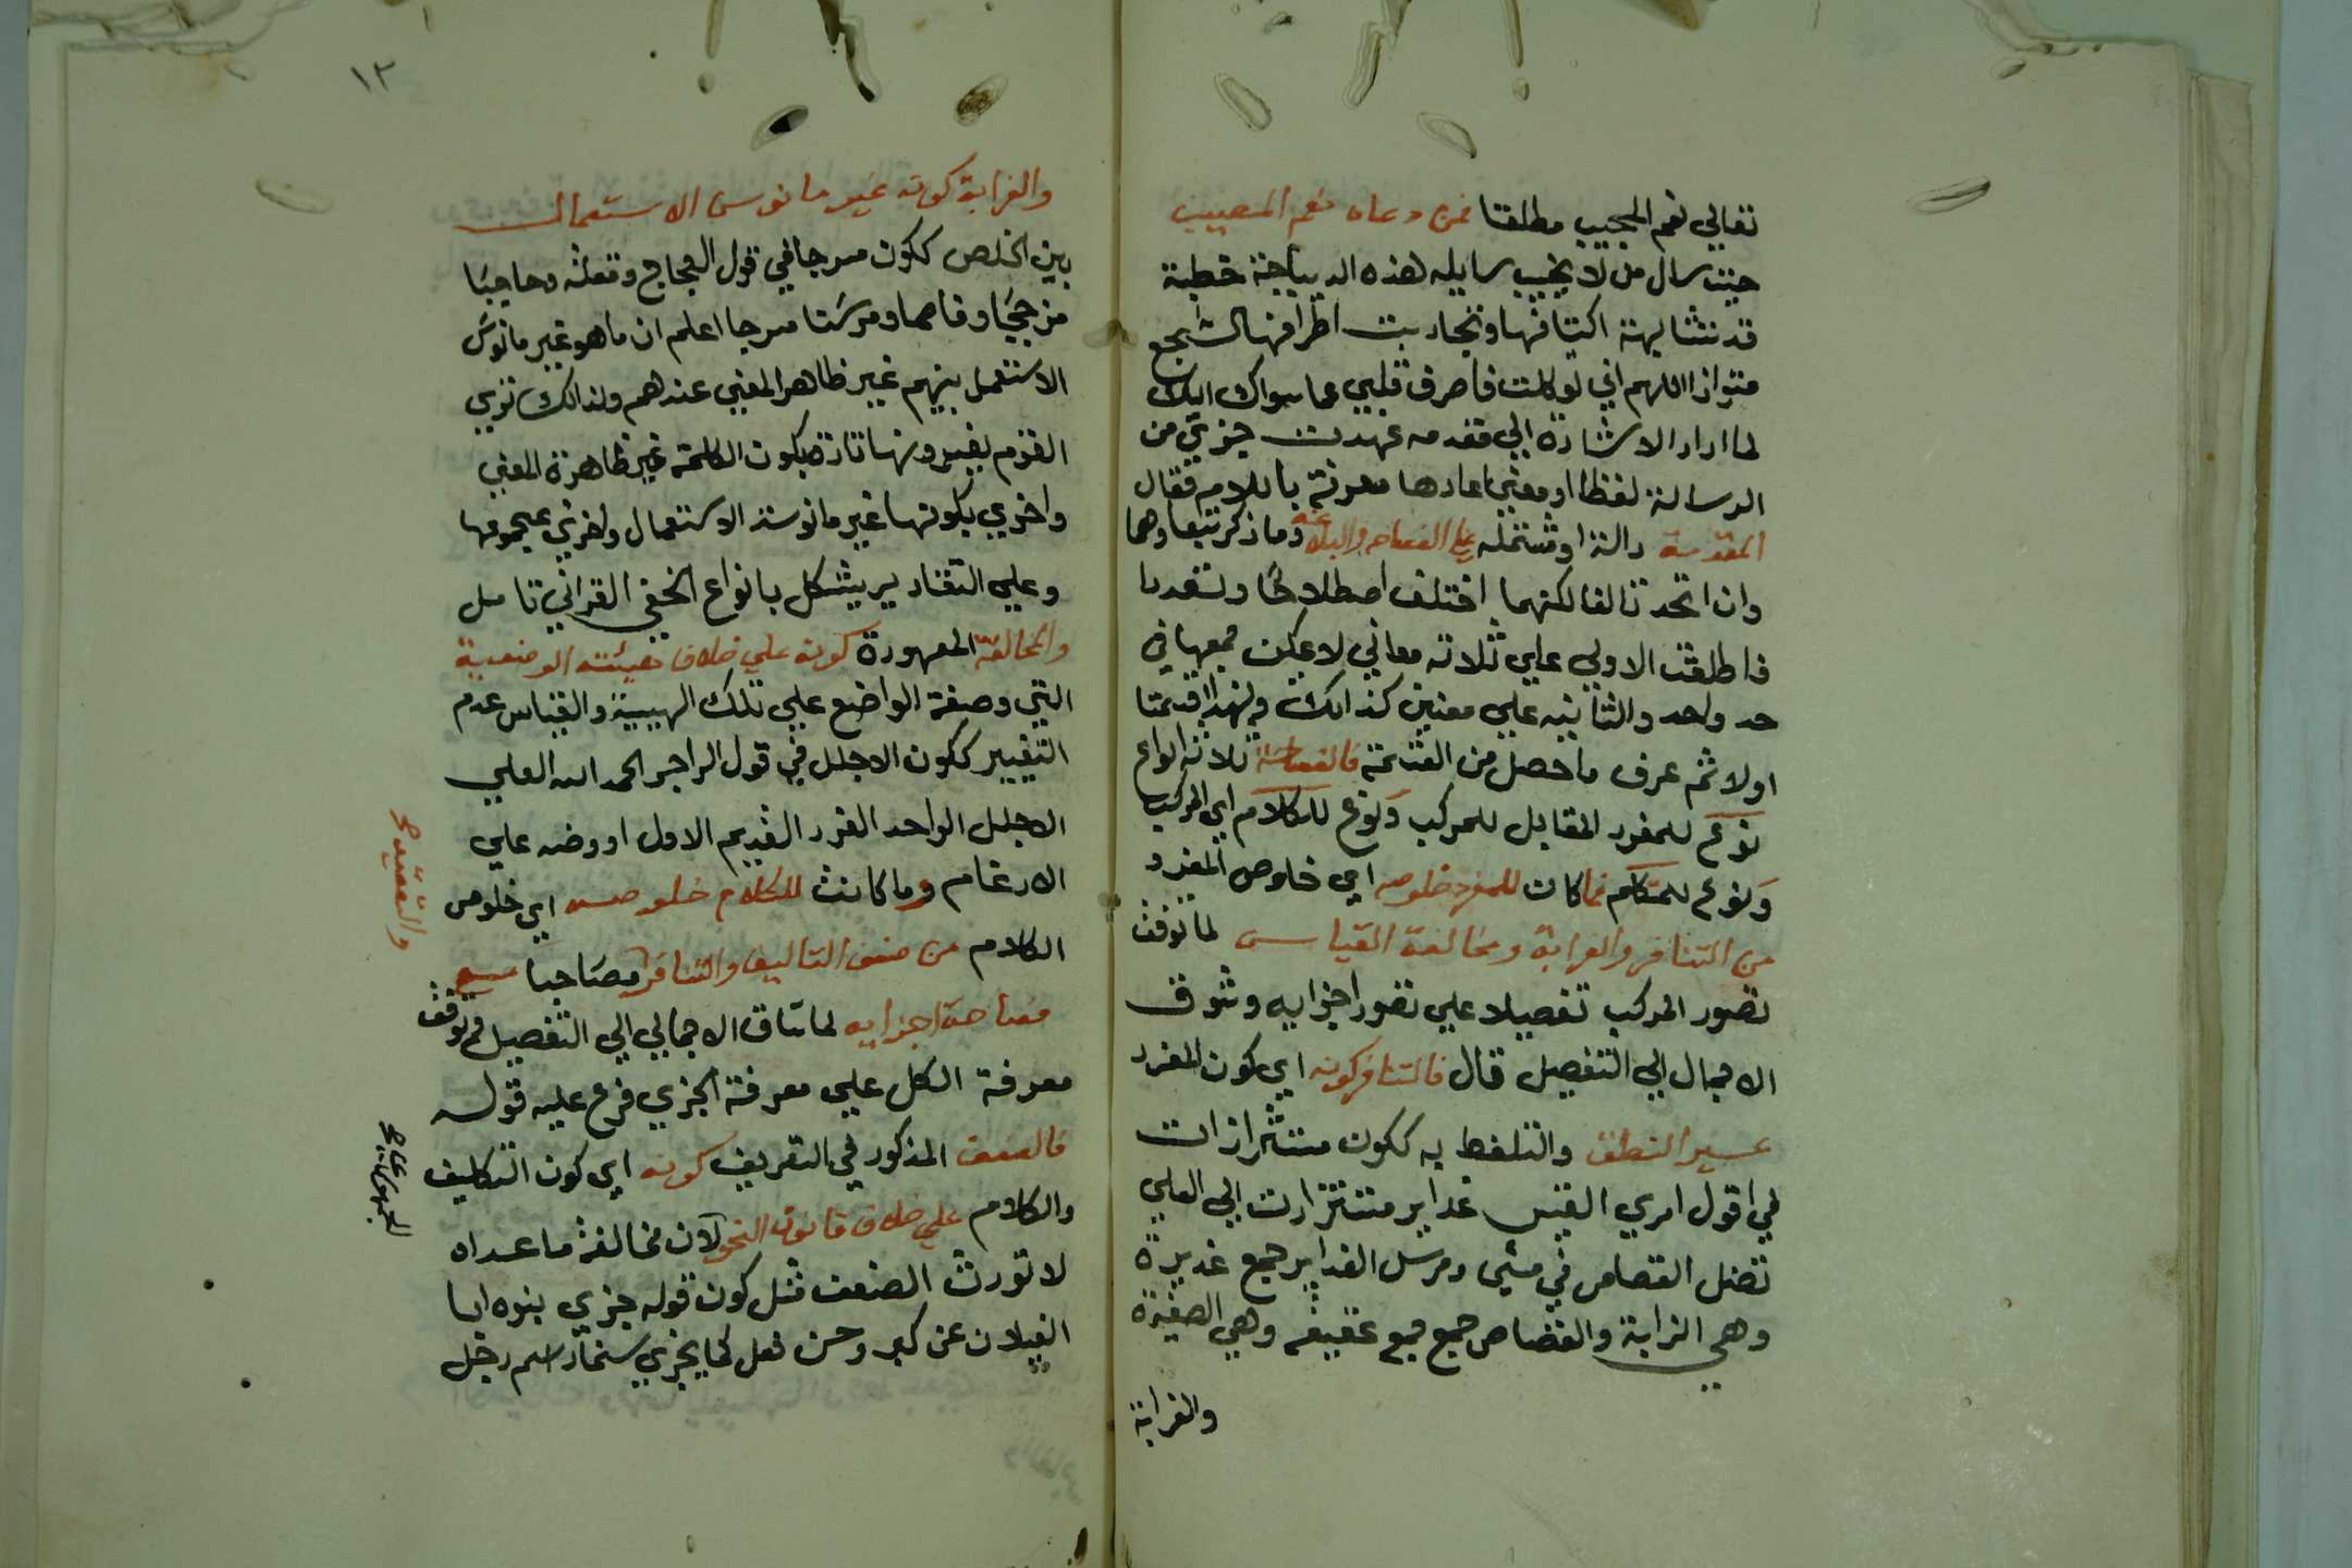 تعالي نعم المجيب مطلقا فمن دعاه نعم المصيب
حيث سال من لا يخيب سايله هذه الديباجة خطبة
قد تشابهت اكتافها وتجاربت اطرافها الشجع
متوازا اللهم اني توكلت فاصرف قلبي عما سواك اليك
لما اراد الاشارة الي مقدمه عهدت جزئ من
الرسالة لفظا او معني اعادها معرفة باللام فقال
المقدمة دالة او مشتمله علي الفصاحه والبلاغه وما ذكر تبعا وهما
وان اتحد تالفا لكنهما اختلف اصطلاحا وتعددا
فاطلقت الاولي علي ثلاثه معاني لا يمكن جمعها في
حد واحد والثانيه علي معنين كذالك ولهذا قسمتا
اولا ثم عرف ما حصل من القسمة فالفصاحة ثلاثه انواع
نوع للمفرد المقابل للمركب ونوع للكلام اي المركب
ونوع للمتكلم فما كان للمفرد خلوصه اي خلوص المفرد
من التنافر والغرابة ومخالفة القياس لما توقف
تصور المركب تفصيلا علي تصور اجزايه وشوق
الاجمال الي التفصيل قال فالتنافر كونه اي كون المفرد
عسير النطق والتلفظ به ككون مستشزرات
في اقول امري القيس غداير مستشزرات الي العلي
تضل القصاص في مثني ومرسل الغداير جمع غديرة
وهي الزابة والقضاص جمع جمع عقيقه وهي الصغيرة
والغرابة
١٢
والغرابة كونه غير مانوس الاستعمال
بين الخلص ككون مسرجا في قول العجاج ومقلة وحاجبا
مزججا وفاحما ومرسنا مسرجا اعلم ان ما هو غير مانوس
الاستعمل بينهم غير ظاهر المعني عندهم ولذالك تري
القوم يفسرونها تارة بكون الكلمة غير ظاهرة المعني
واخري بكونها غير مانوسة الاستعمال واخري بمجموعها
وعلي التقادير يشكل بانواع الخفي القراني تامل
والمخالفة المعهودة كونه علي خلاف هيئته الوضعية
التي وصفة الواضع علي تلك الهيية والقياس عدم
التغيير ككون الاجلل في قول الراجز الحمد الله العلي
الاجلل الواحد الفرد القديم الاول اووضه علي
الادغام وما كانت للكلام خلوصه اي خلوص
الكلام من ضعف التاليف والتنافر مصاحبا مع
والتعقيد صح
فصاحة اجزايه لما شاق الاجمالي الي التفصيل وتوقف
معرفة الكل علي معرفة الجزي فرع عليه قوله
فالضعف المذكور في التعريف كونه اي كون التكليف
والكلام علي خلاف قانون النحو لان مخالفة ما عداه
لا تورث الضعف مثل كون قوله جزي بنوه ابا
الغيلان عن كبر وحسن فعل كما يجزي سنمار اسم رجل